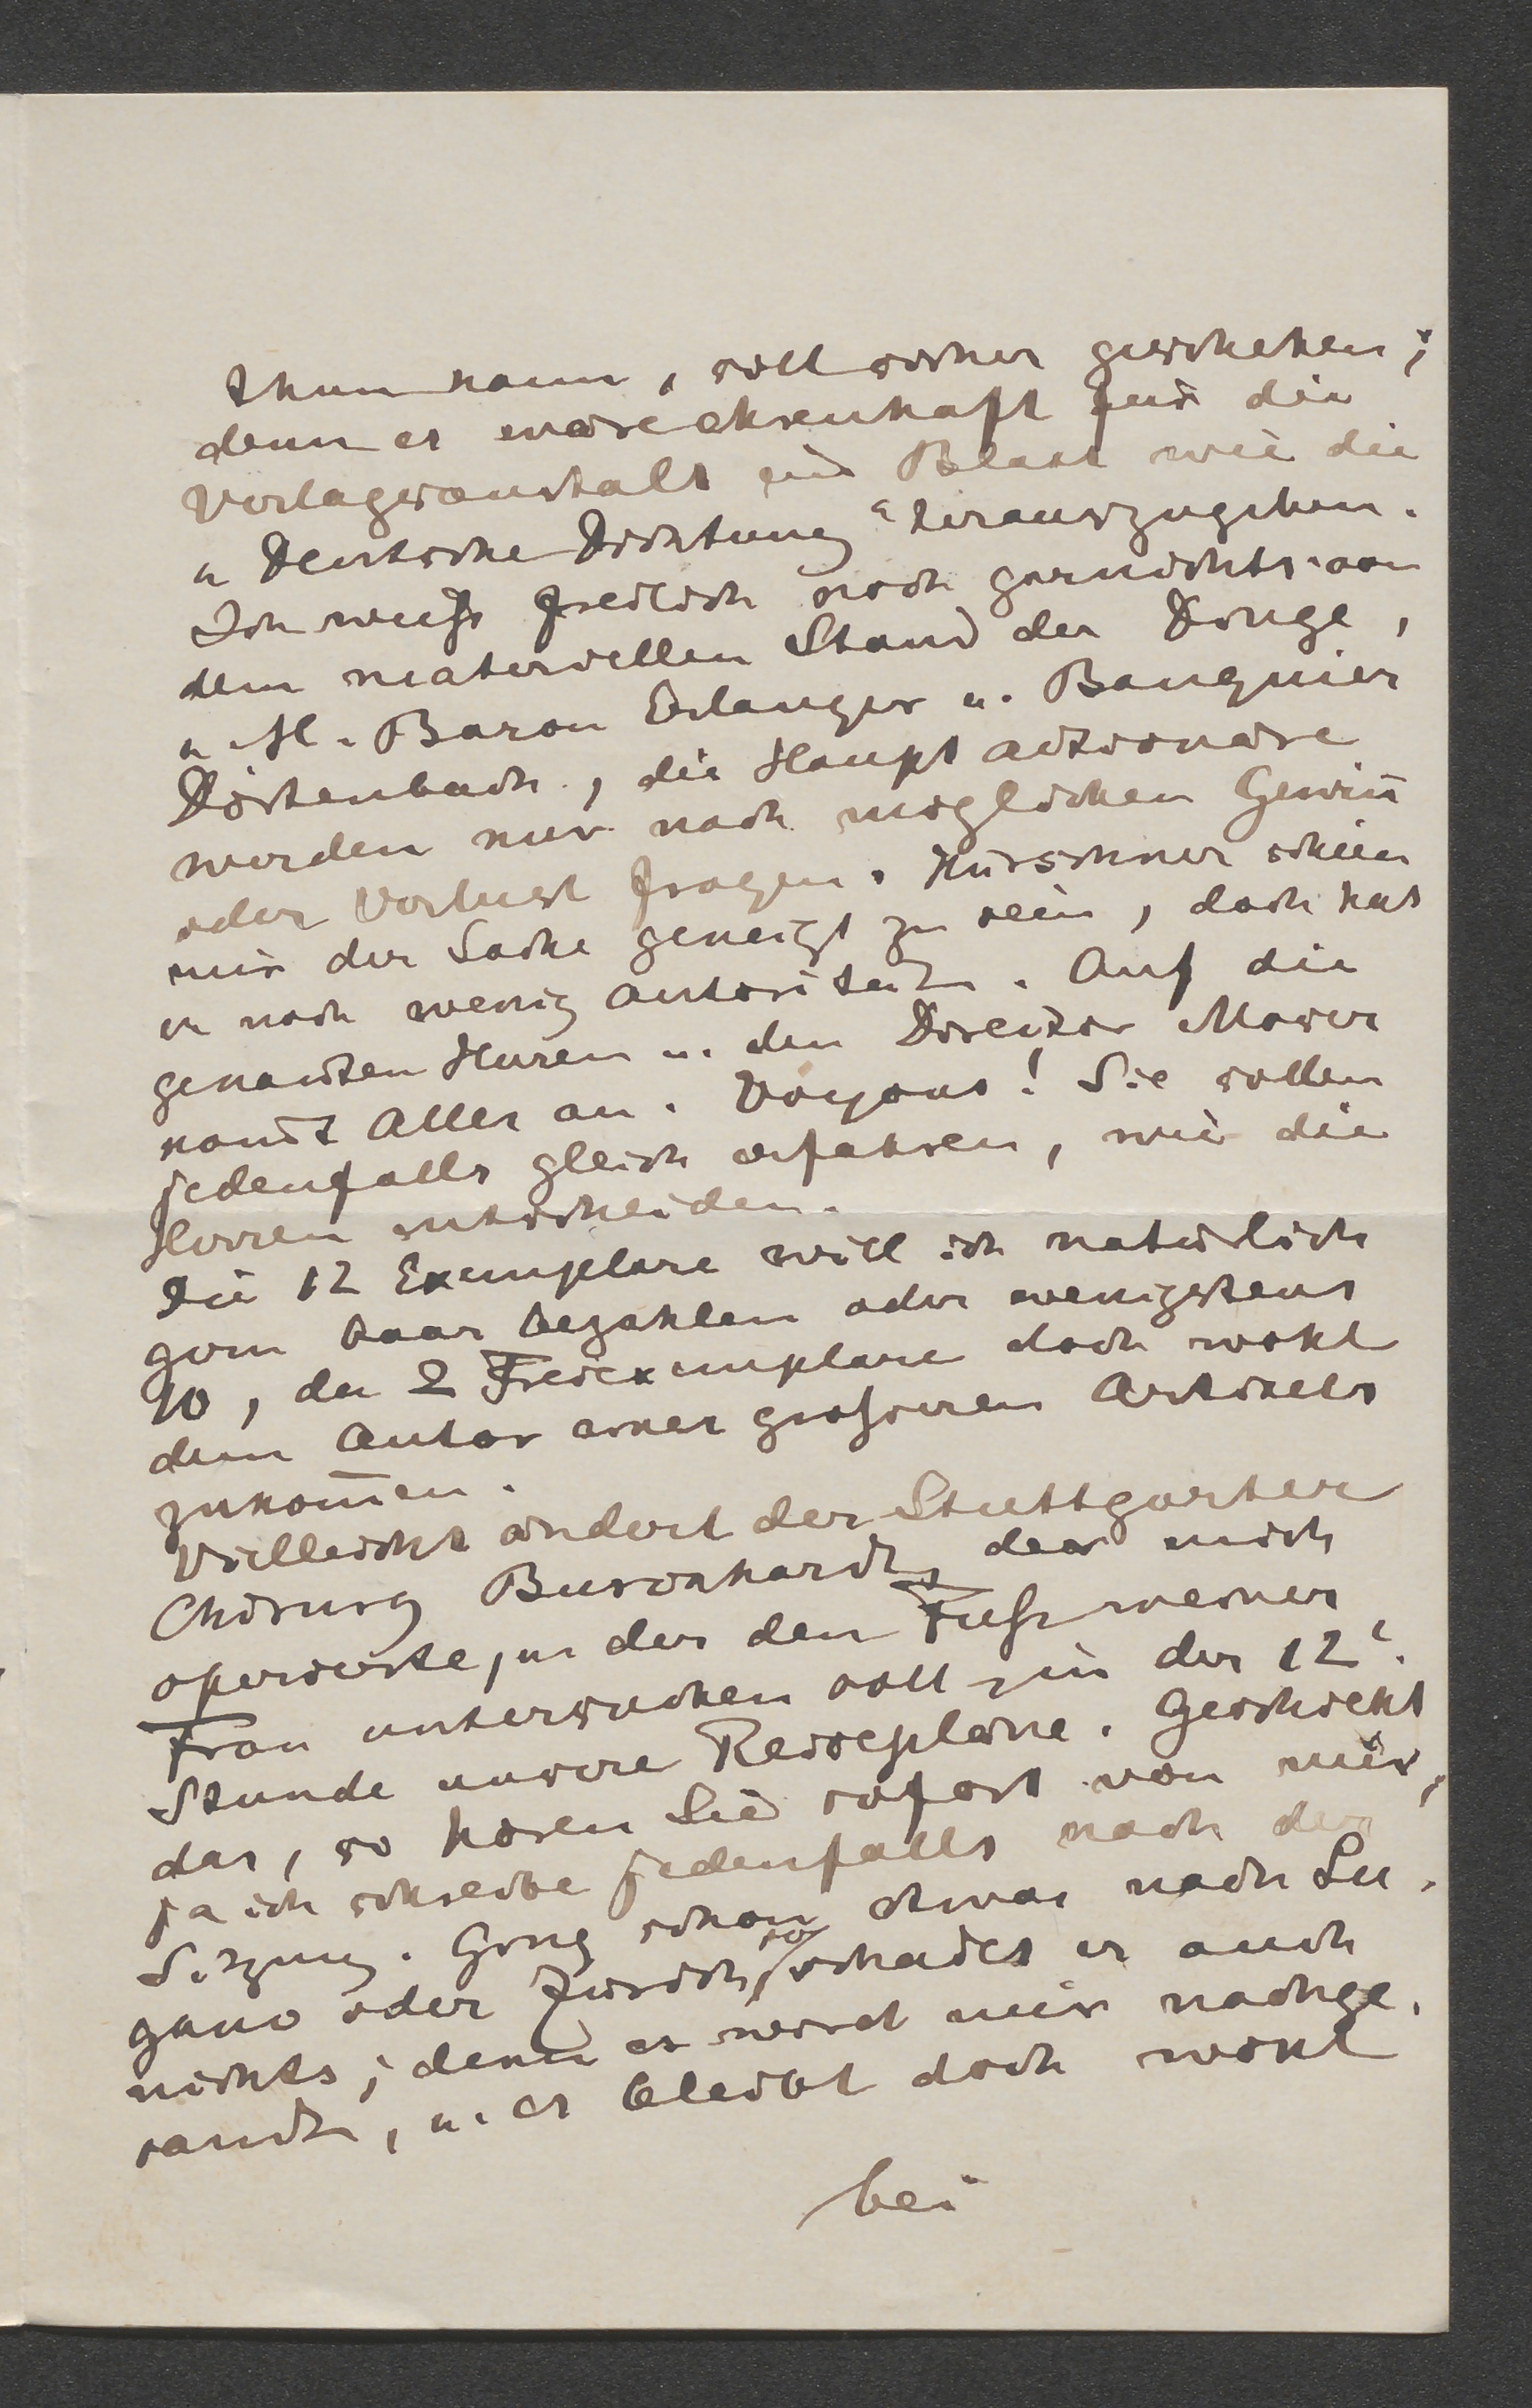 thun kann, soll sicher geschehen;
denn es wäre ehrenhaft für die
Verlagsanstalt ein Blatt wie die
„Deutsche Dichtung“ herauszugeben.
Ich weiß freilich noch garnichts von
dem materiellen Stand der Dinge,
u. H. Baron Erlanger u. Banquier
Dörtenbach, die Haupt actionäre
werden nur nach möglichen Gewiñ
oder Verlust fragen. Kürschner schien
mir der Sache geneigt zu sein, doch hat
er noch wenig Autorität. Auf die
genañten Herren u. den Director Moser
kom̃t Alles an. Voyons! Sie sollen
jedenfalls gleich erfahren, wie die
Herren entscheiden.
Die 12 Exemplare will ich natürlich
gern baar bezahlen oder wenigstens
10, da 2 Freiexemplare doch wohl
dem Autor eines größeren Artikels
zukom̃en.
Vielleicht ändert der Stuttgarter
Chirurg Burckhardt, der mich
operirte, u. der den Fuß meiner
Frau untersuchen soll, in der 12t.
Stunde unsere Reisepläne. Geschieht
das, so hören Sie sofort von mir,
ja ich schreibe jedenfalls nach der
Sitzung. Ging schon etwas nach Lu-
gano oder Zürich, so schadet es auch
nichts; denn es wird mir nachge-
sandt, u. es bleibt doch wohl
bei